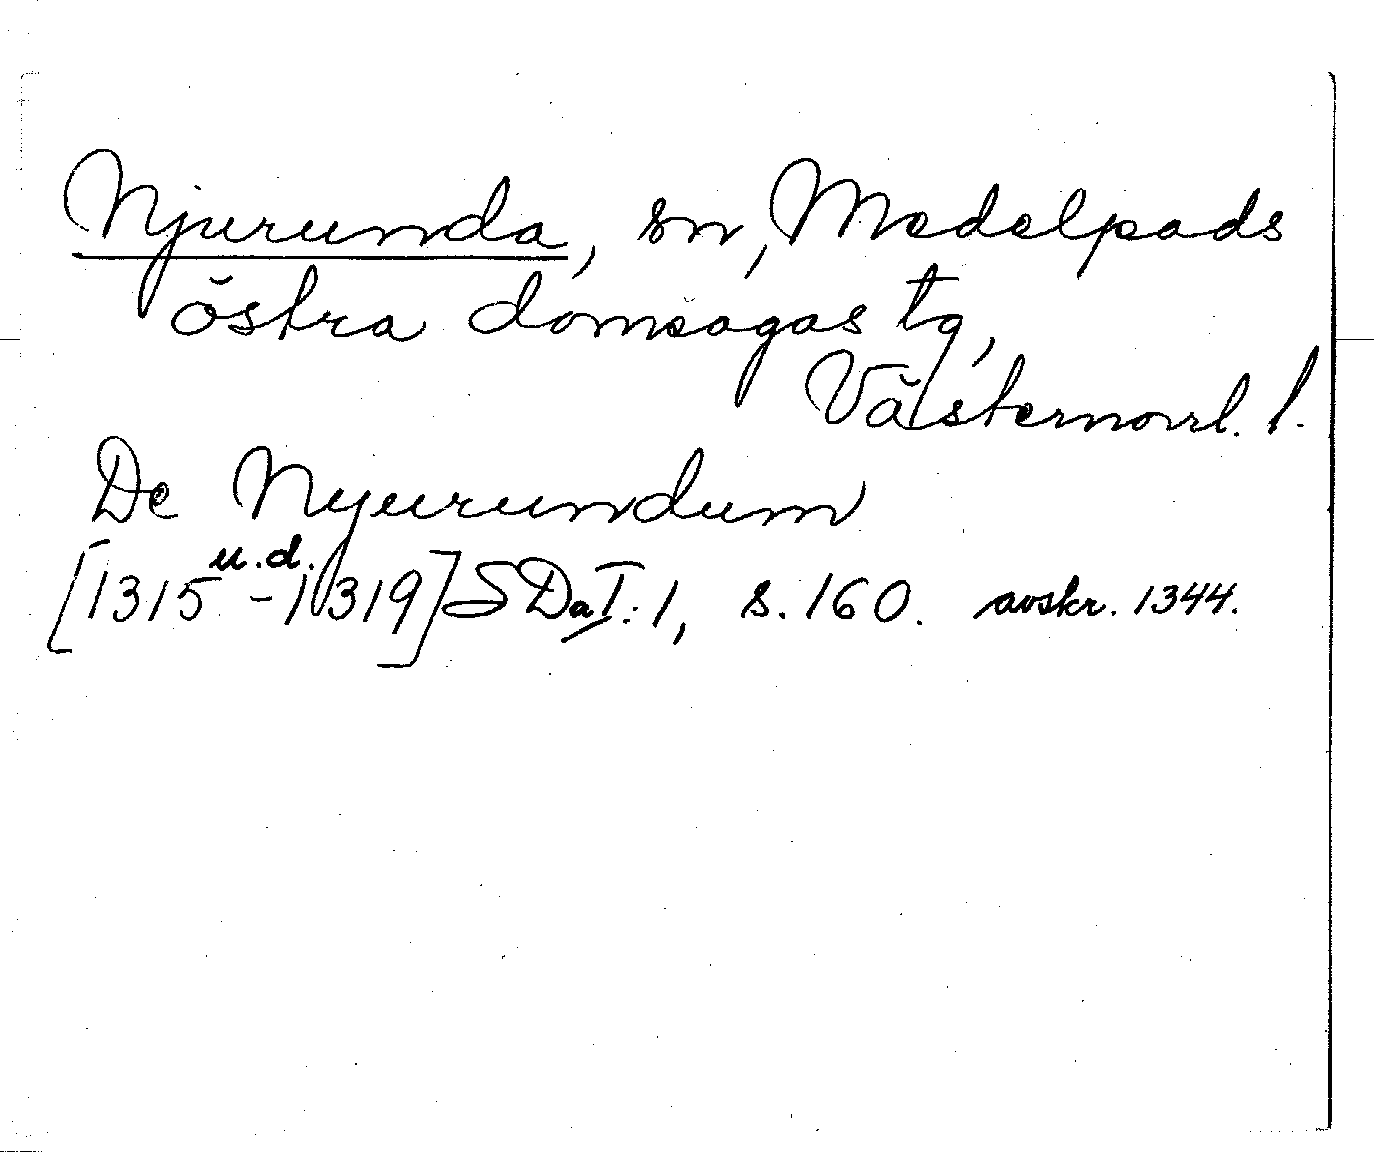 Njurunda, sn, Medelpads
östra domsagas tg,
Västernorrl. l.
De Nyurundum
u.d.
[1315 - 1319] SDaI:1, s. 160. avskr. 1344.